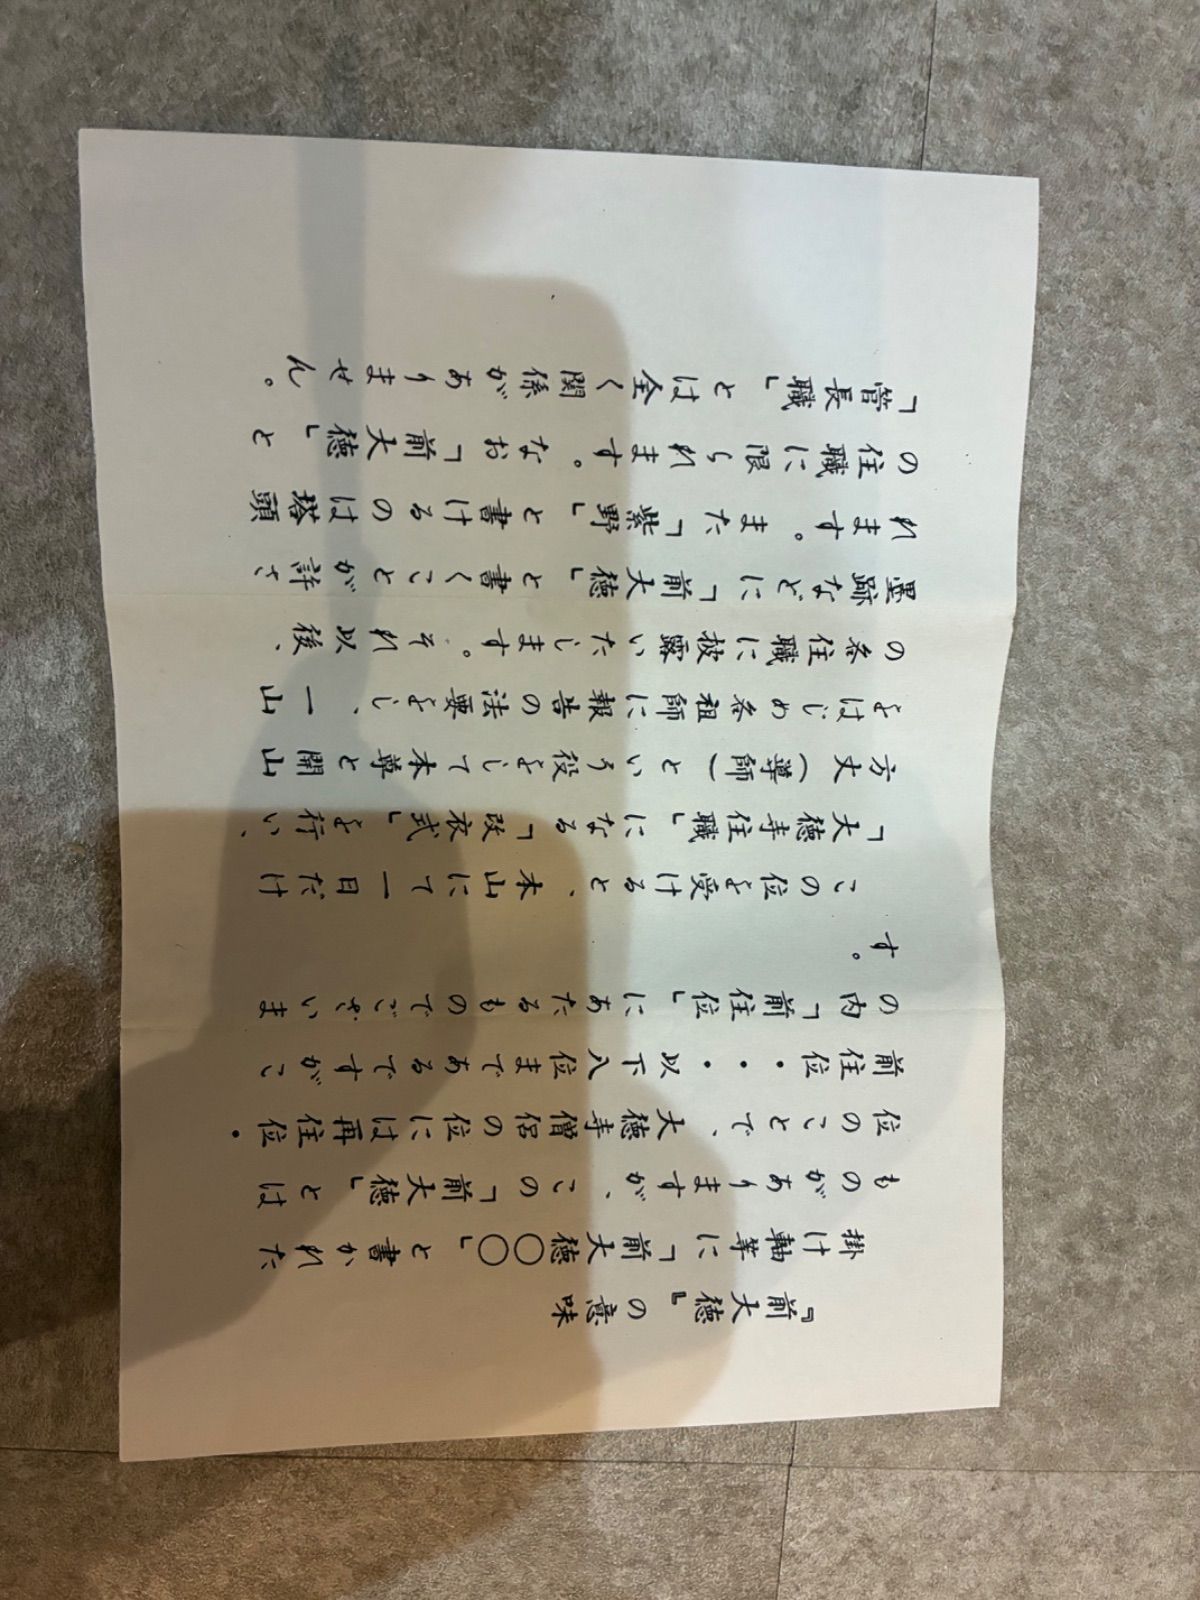 『前大徳』の意味
掛け軸等に「前大徳〇〇」と書かれた
ものがありますが、この「前大徳」とは
位のことで、大徳寺僧侶の位には再住位・
前住位・・・以下八位まであるですがこ
の内「前住位」にあたるものでございま
す。
この位を受けると、本山にて一日だけ
「大徳寺住職」になる「改衣式」を行い、
方丈（導師）という役をして本尊と開山
をはじめ各祖師に報告の法要をし、一山
の各住職に披露いたします。それ以後、
墨跡などに「前大徳」と書くことが許さ
れます。また「紫野」と書けるのは塔頭
の住職に限られます。なお「前大徳」と
「管長職」とは全く関係がありません。